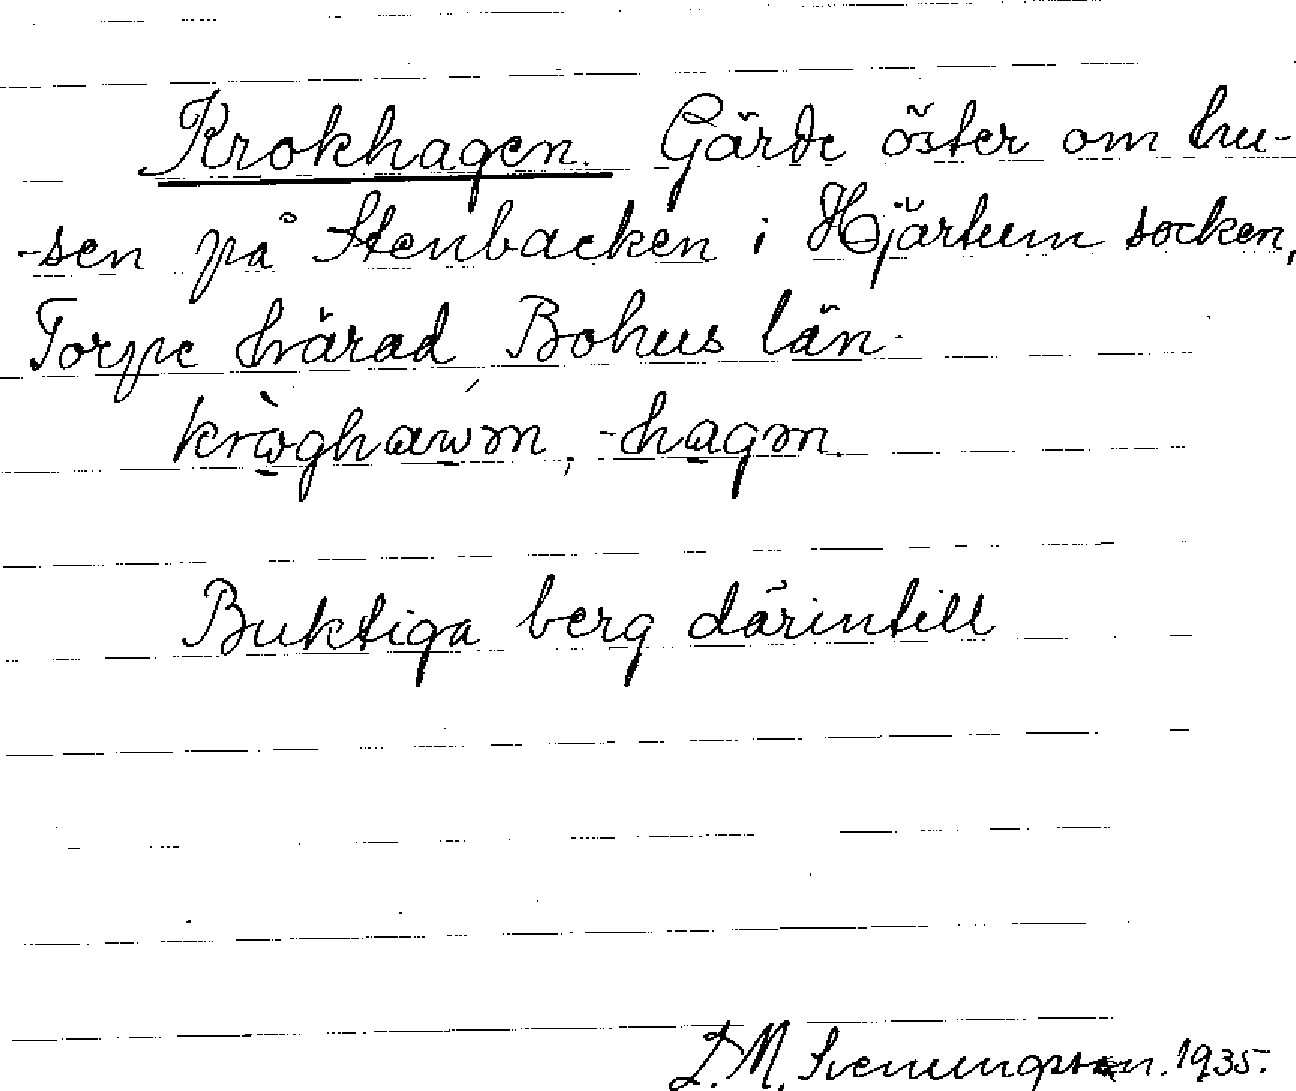 Krokhagen. Gärde öster om hu-
-sen på Stenbacken i Hjärtum socken,
Torpe härad Bohus län.
kròghawən, -hagən.
Buktiga berg därintill
D.M. Svenungsson. 1935.